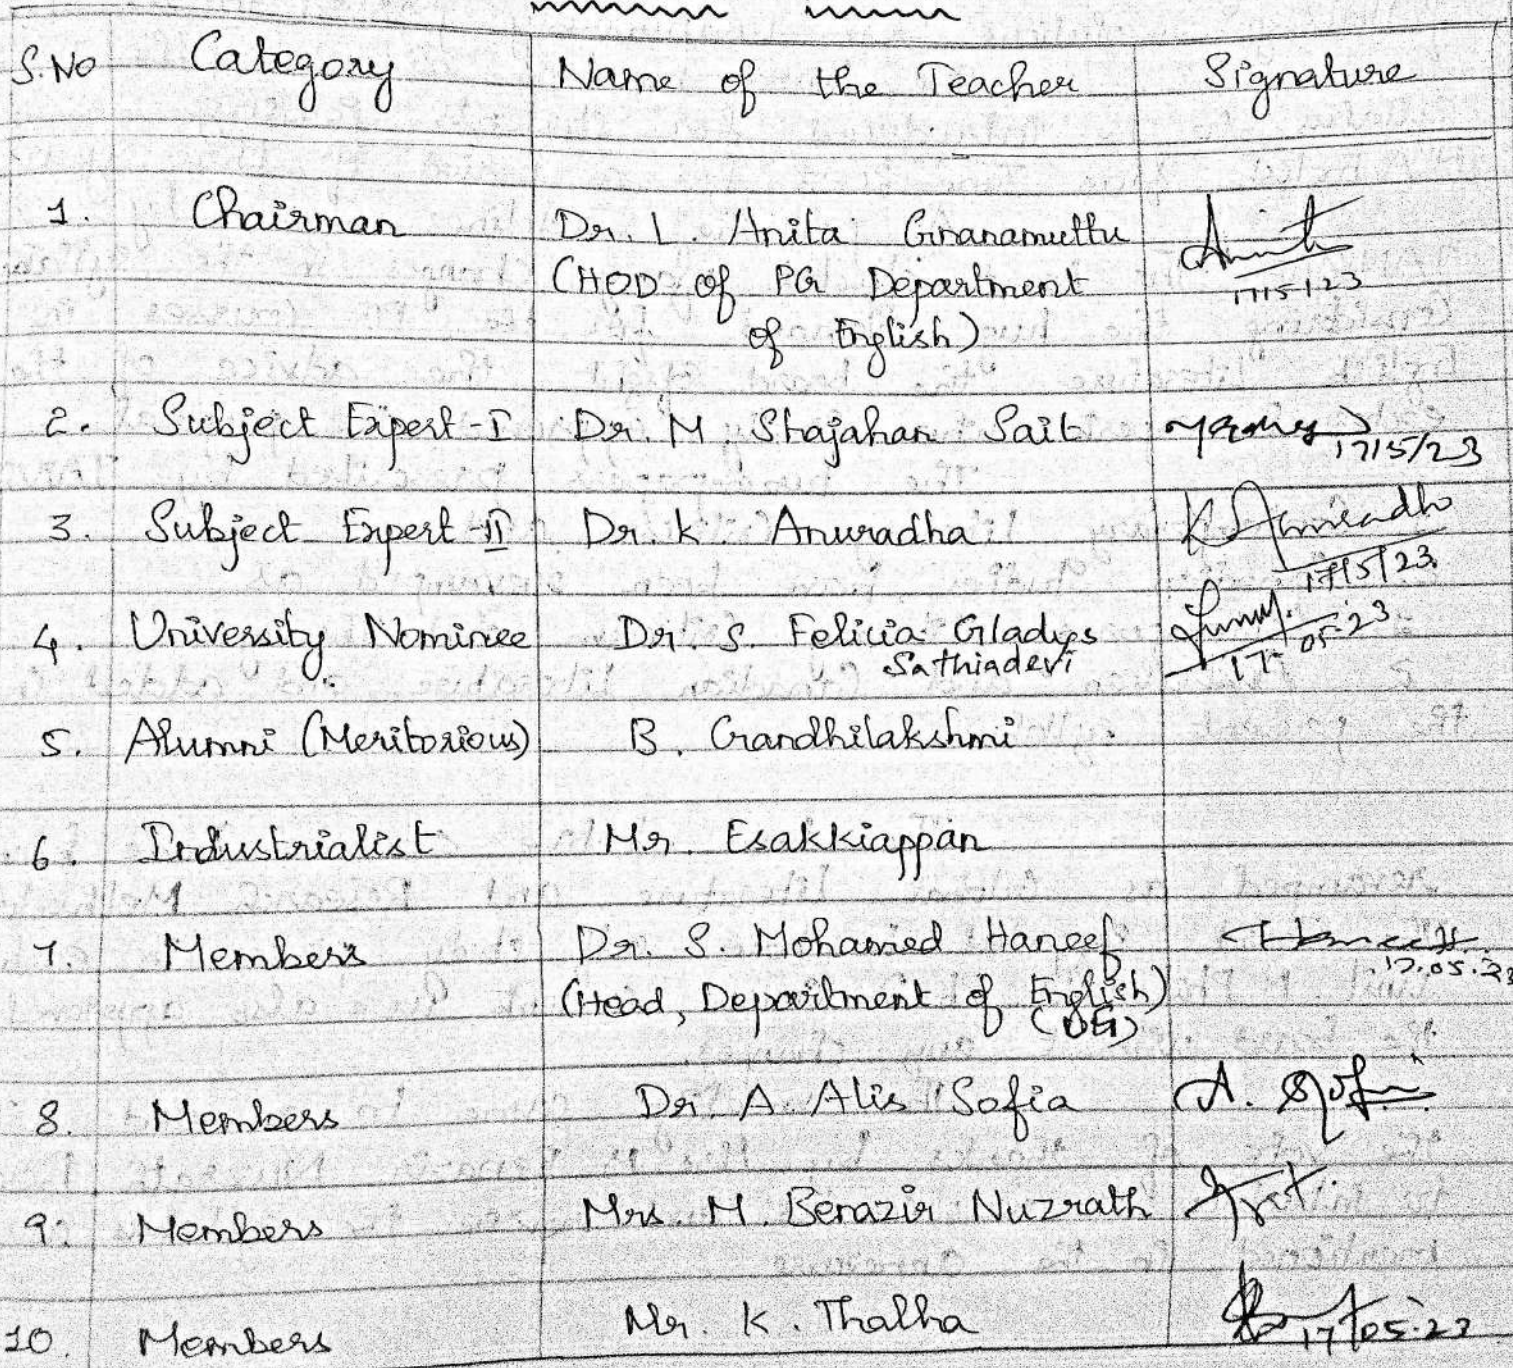 S.No Category Name of the Teacher Signature
1. Chairman Dr. L. Anita Gnanamuttu
(HOD of PG Department
of English)
17/5/23
2. Subject Expert-I Dr. M. Shajahan Sait
17/5/23
3. Subject Expert-II Dr. K Anuradha K Anuradha
17/5/23
4. University Nominee Dr. S. Felicia Gladys
Sathiadevi
17-05-23
5. Alumni (Meritorious) B. Gandhilakshmi
6. Industrialist Mr. Esakkiappan
7. Members Dr. S. Mohamed Haneef
17.05.23
(Head, Department of English)
(UG)
8. Members Dr. A. Alis Sofia A. Sofia
9. Members Mrs. M. Benazir Nuzrath
10. Members Mr. K. Thalha
17/05.23